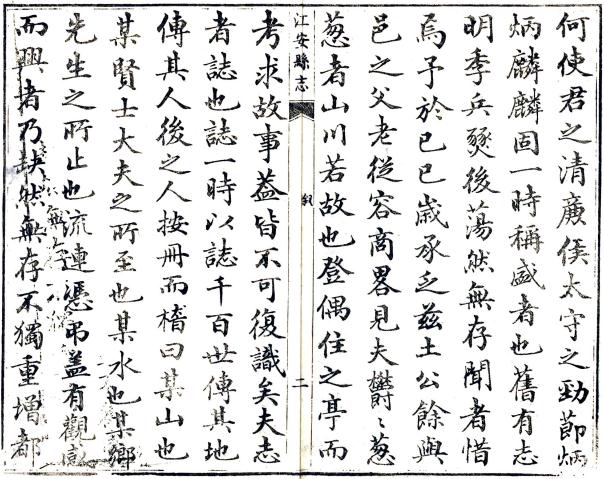 何使君之清廉侯太守之勁節炳
炳麟麟固一時稱盛者也舊有志
明季兵燹後蕩然無存聞者惜
焉予於己巳歲承乏茲土公餘與
邑之父老從容商畧見夫欝〻葱
葱者山川若故也登偶住之亭而
江安縣志
敘
二
考求故事蓋皆不可復識矣夫志
者誌也誌一時以誌千百世傳其地
傳其人後之人按冊而稽曰某山也
某賢士大夫之所至也某水也某鄉
先生之所止也流連憑弔蓋有觀感
而興者乃缺然無存不獨重增都